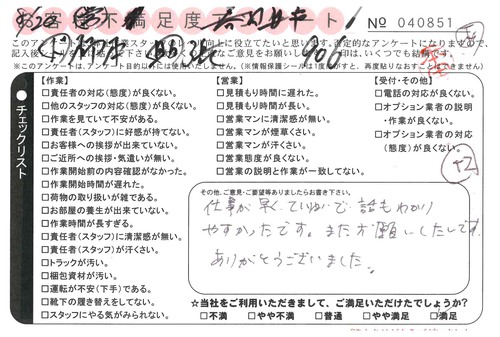 不満足度アンケート
No 040851
このアンケートは
ご意見をお願いし
印は、いくつでも結構です。
※このアンケートは、アンケート目的以外には使用いたしません。(※情報保護シールは1度剥がすと、再度貼りなおすことはできません)
チェックリスト
【作業】
□責任者の対応(態度)が良くない。
□他のスタッフの対応(態度)が良くない。
□作業を見ていて不安がある。
□責任者(スタッフ)に好感が持てない。
□お客様への挨拶が出来ていない。
□ご近所への挨拶・気遣いが無い。
□作業開始前の内容確認がなかった。
□作業開始時間が遅れた。
□荷物の取り扱いが雑である。
□お部屋の養生が出来ていない。
□作業時間が長すぎる。
□責任者(スタッフ)に清潔感が無い。
□責任者(スタッフ)が汗くさい。
□トラックが汚い。
□梱包資材が汚い。
□運転が不安(下手)である。
□靴下の履き替えをしてない。
□スタッフにやる気がみられない。
【営業】
□見積もり時間に遅れた。
□見積もり時間が長い。
□営業マンに清潔感が無い。
□営業マンが煙草くさい。
□営業マンが汗くさい。
□営業態度が良くない。
□営業の説明と作業が一致してない。
【受付・その他】
□電話の対応が良くない。
□オプション業者の説明
・作業が良くない。
□オプション業者の対応
(態度)が良くない。
その他、ご意見・ご要望等ありましたらお書き下さい。
仕事が早く、ていねいで、話もわかり
やすかったです。またお願いしたいです。
ありがとうございました。
☆当社をご利用いただきまして、ご満足いただけたでしょうか?
□不満 □やや不満 □普通 □やや満足 □満足